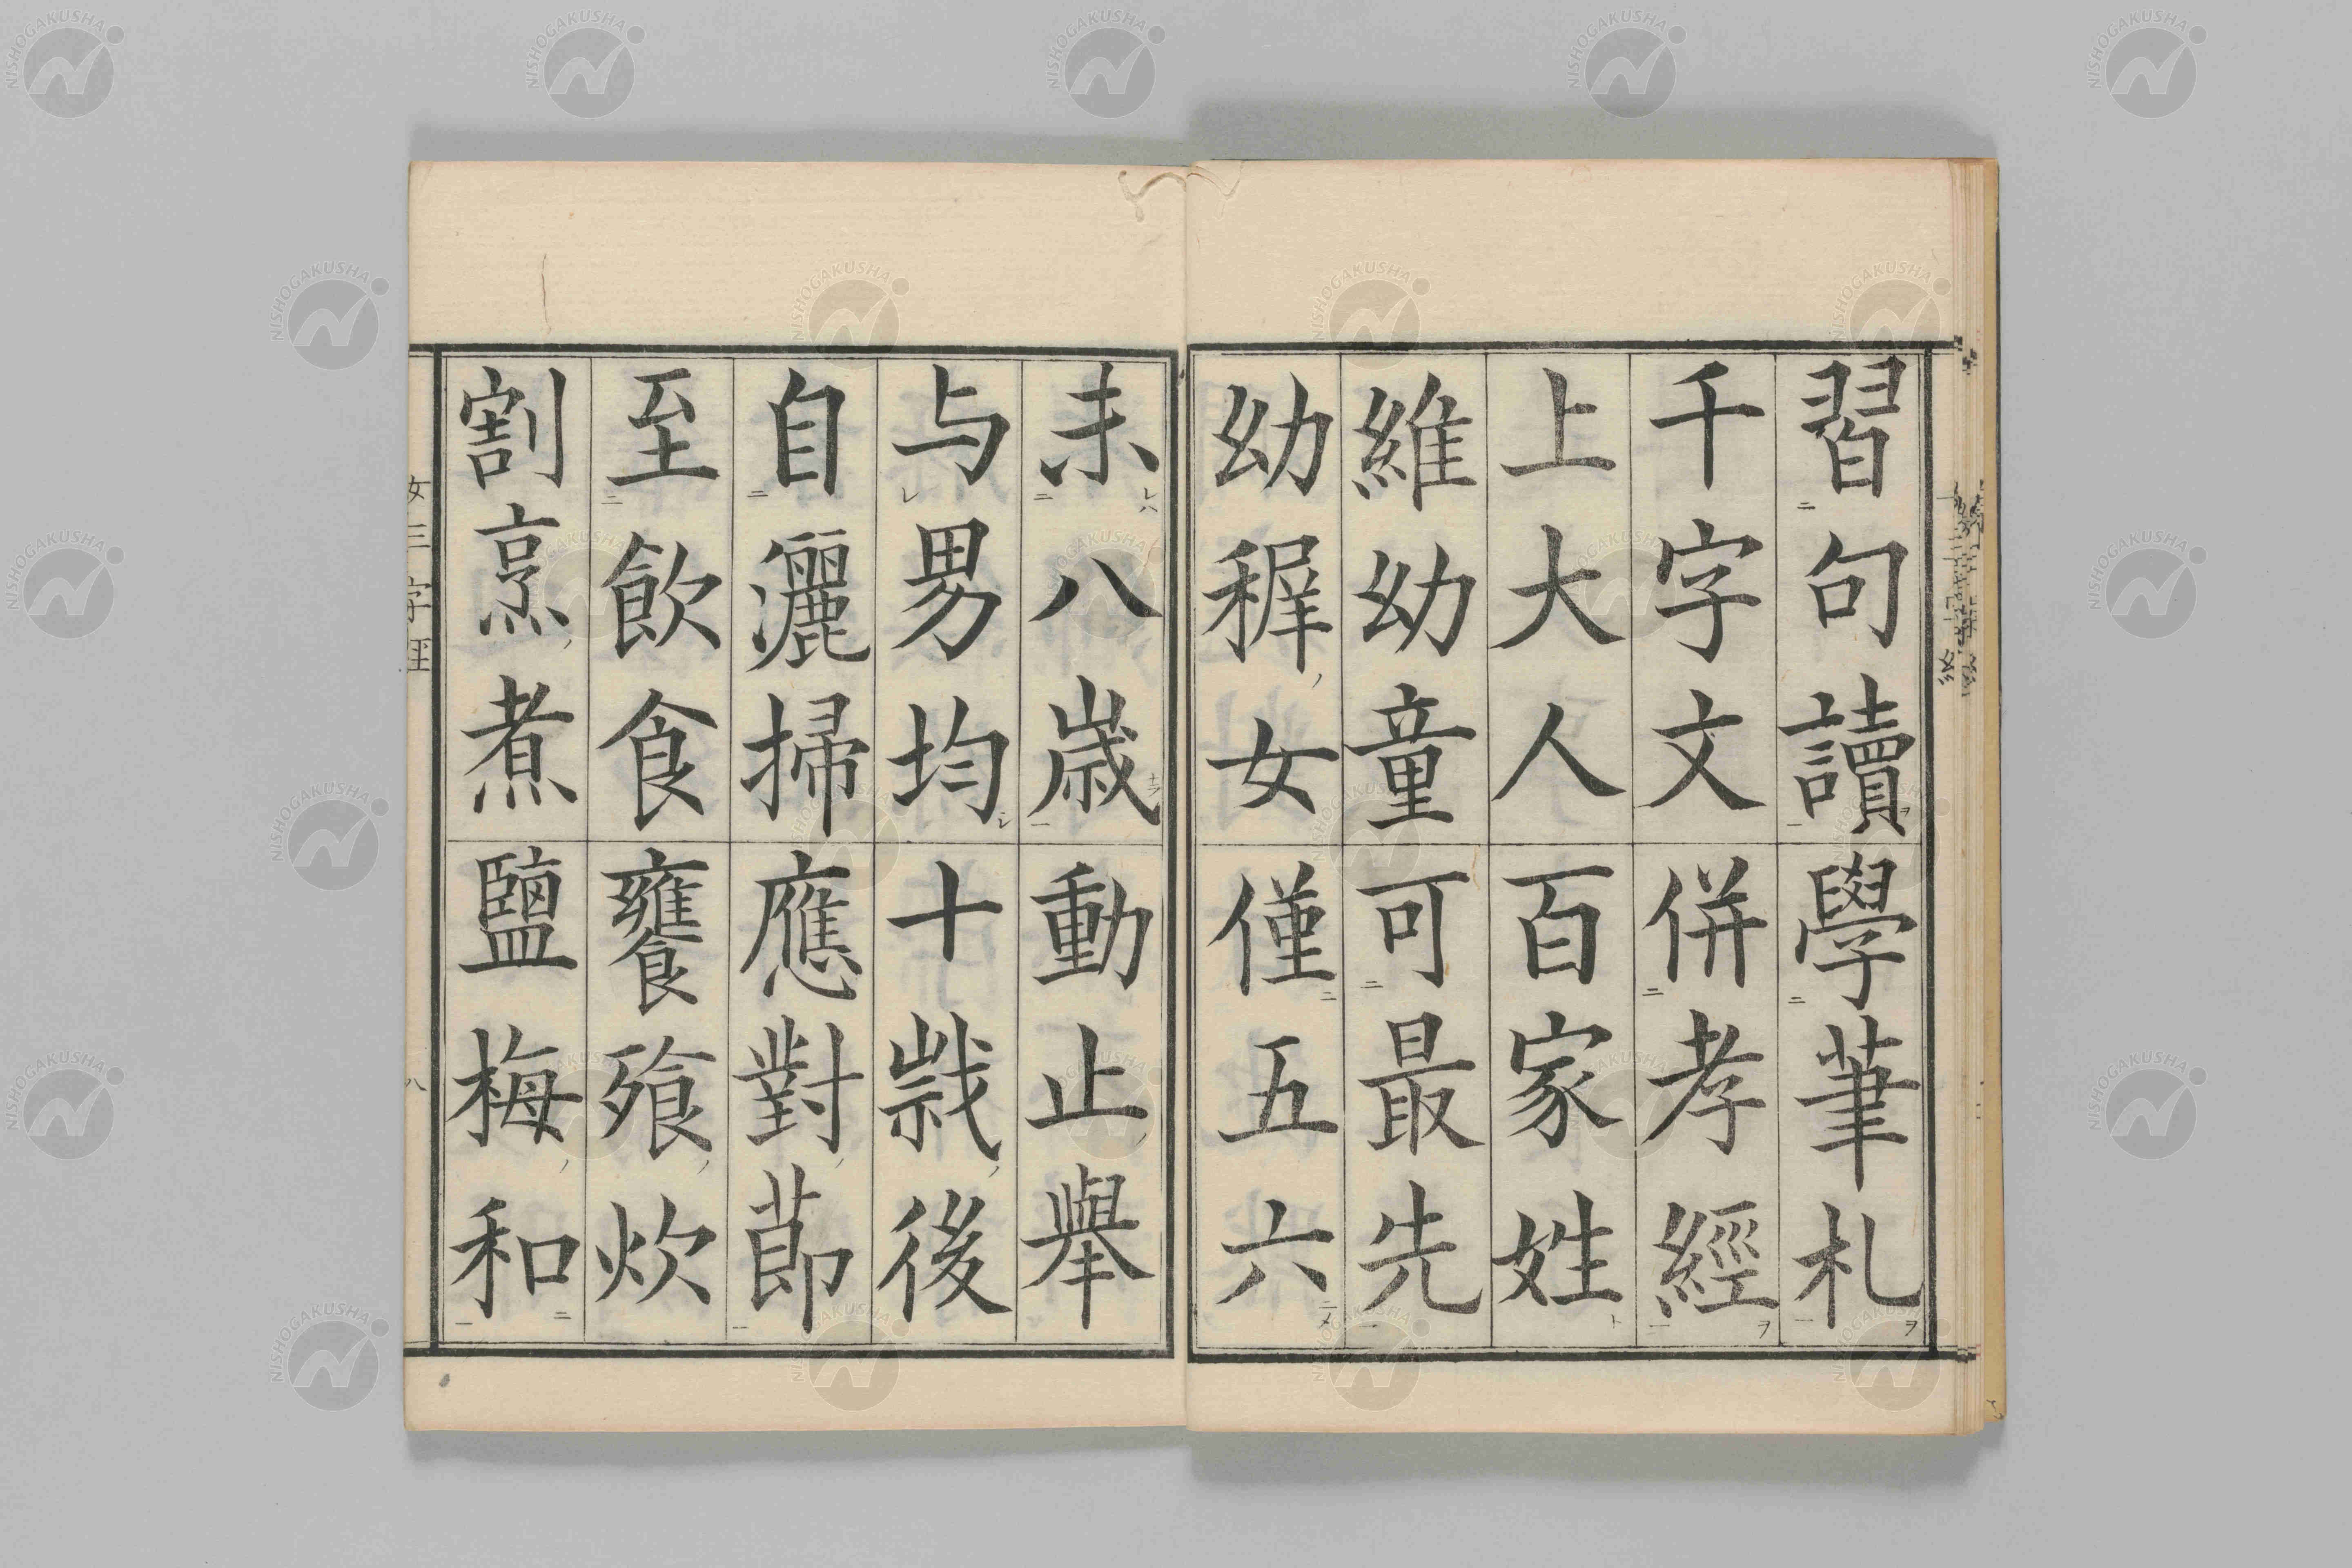 習句讀學筆札
千字文併孝經
上大人百家姓
維幼童可最先
幼穉女僅五六
未八歳動止舉
与男均十歳後
自灑掃應對莭
至飲食饔飱炊
割烹煮鹽梅和
女三字經
八
NISHOGAKUSHA